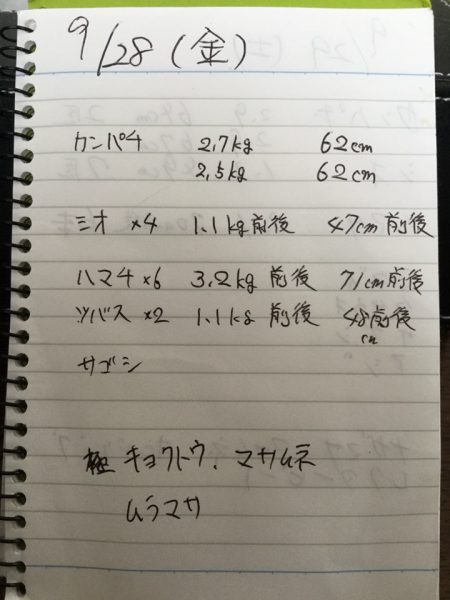 9/28(金)
カンパチ 2.7kg 62cm
2.5kg 62cm
ミオ ×4 1.1kg前後 47cm前後
ハマチ×6 3.2kg前後 71cm前後
ツバス×2 1.1kg前後 48cm前後
サゴシ
極 キョクトウ、マサムネ
ムラマサ